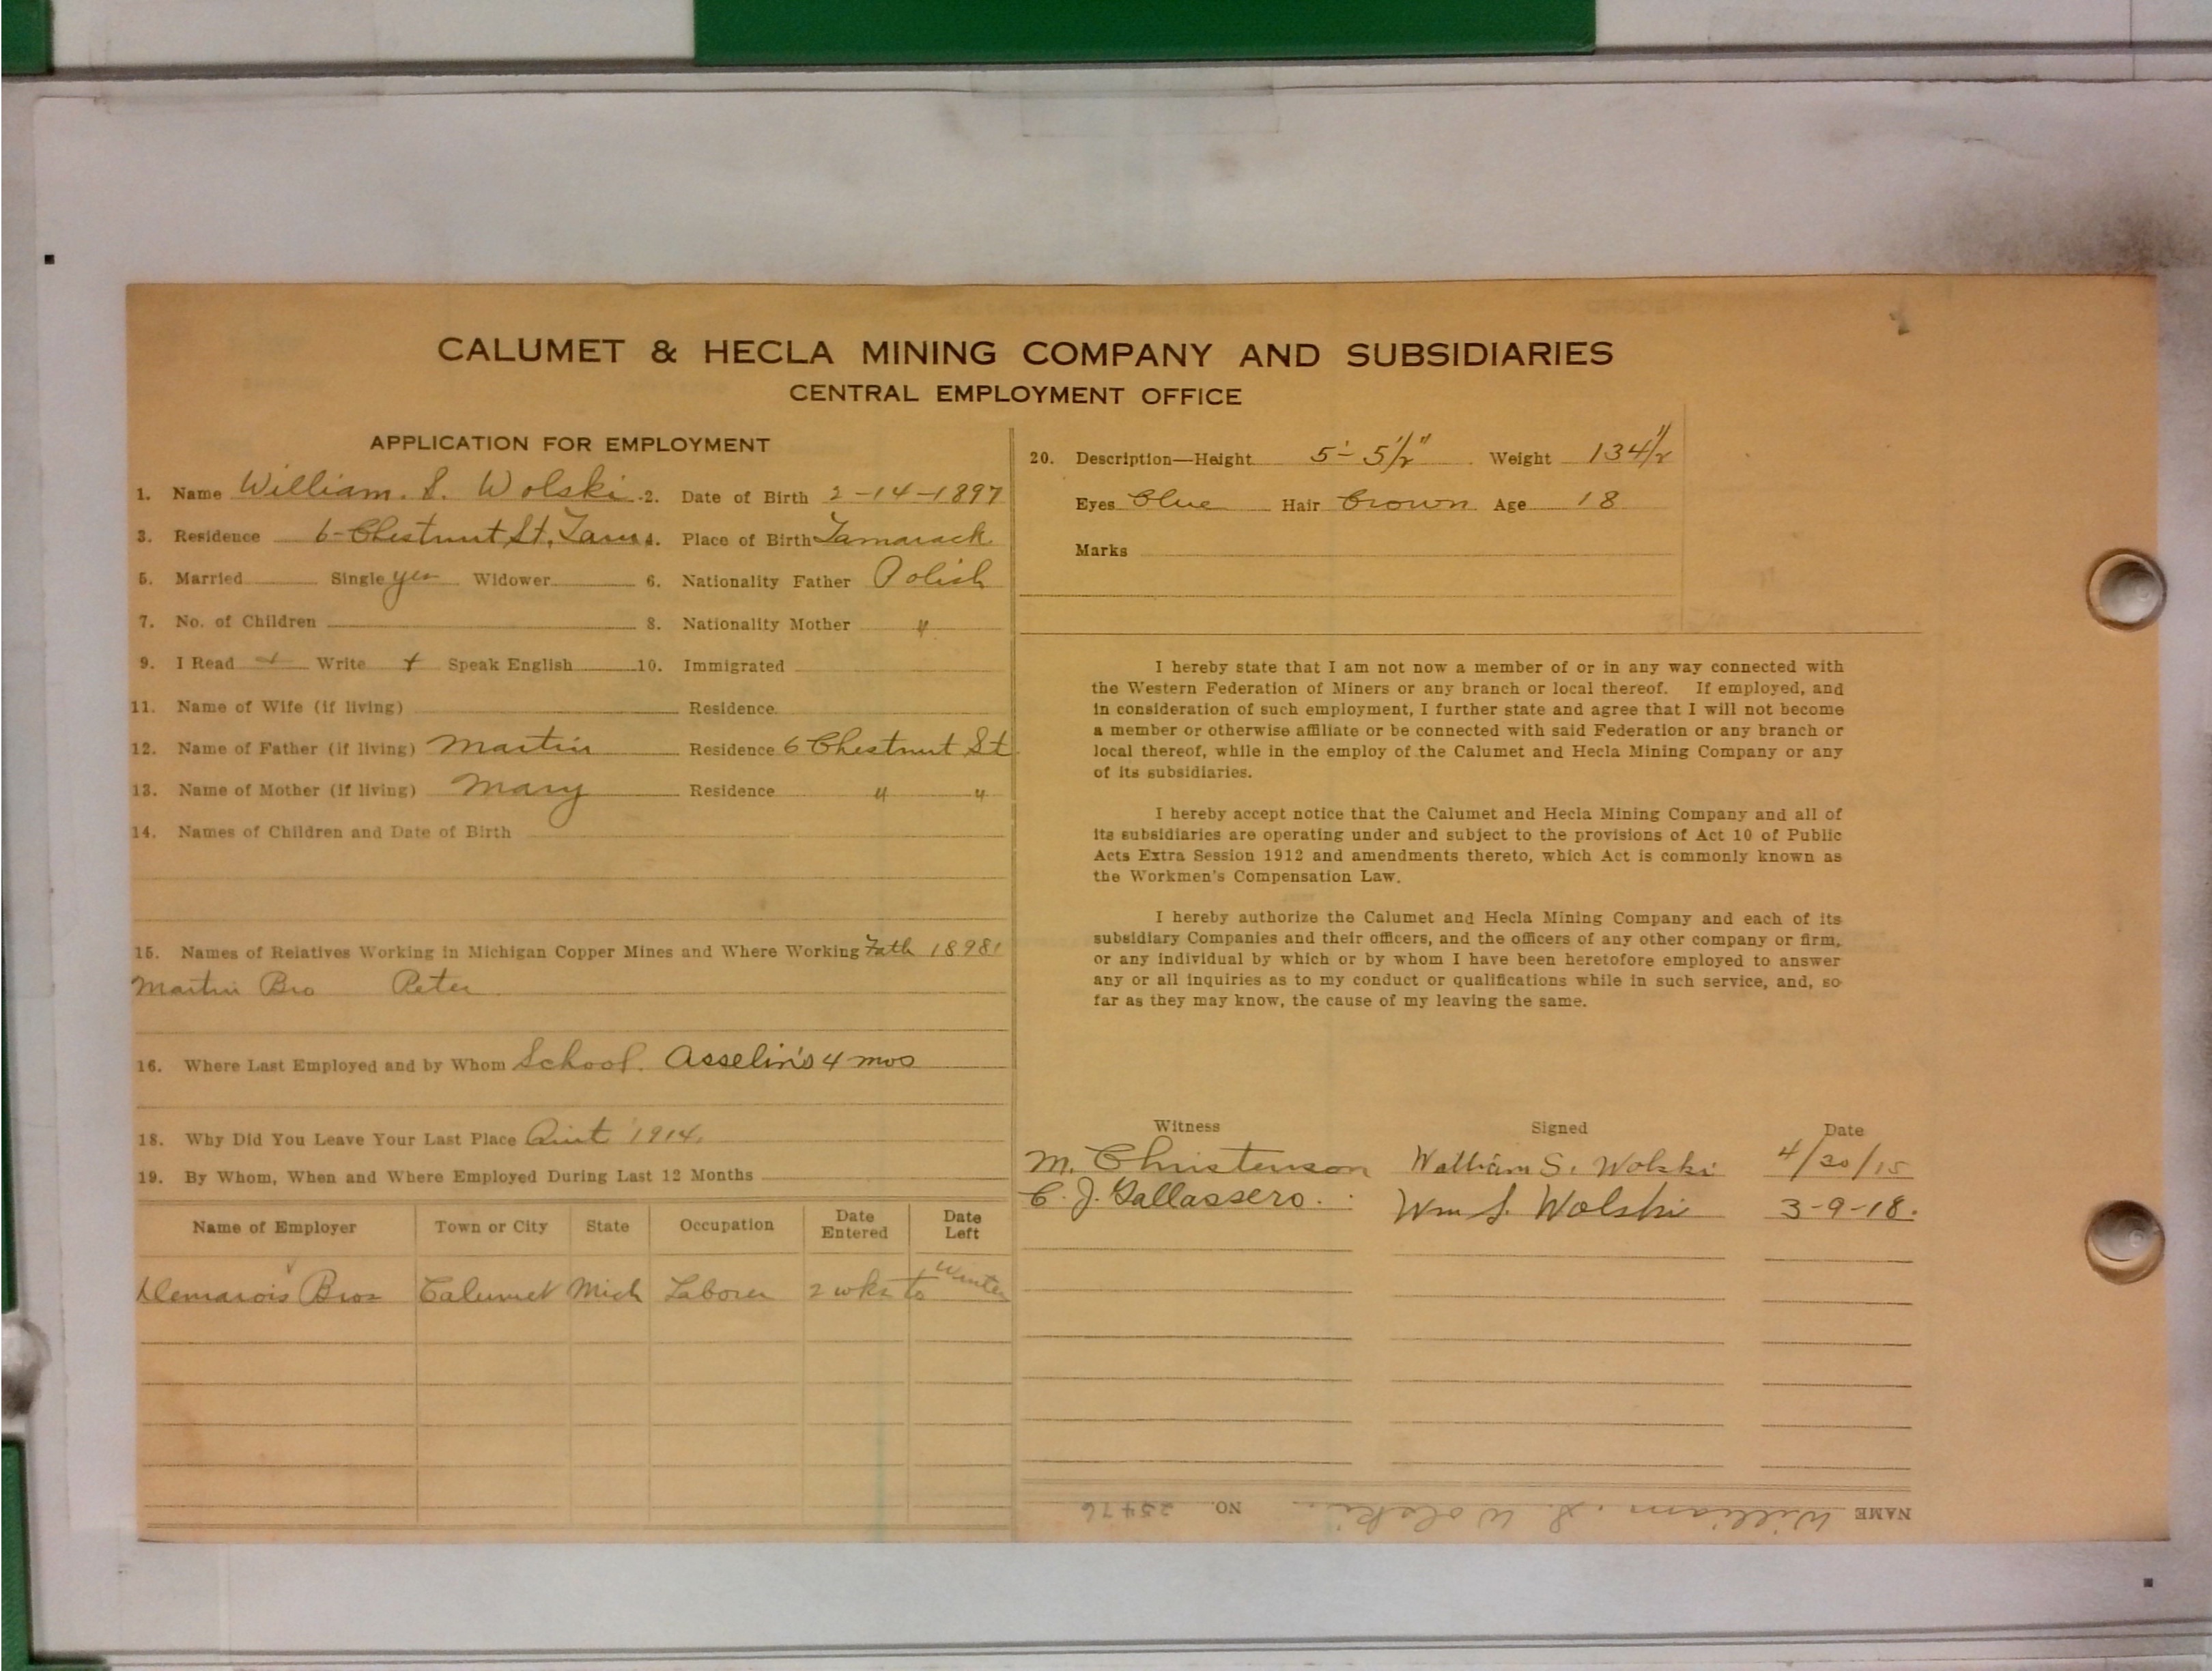 CALUMET & HECLA MINING COMPANY AND SUBSIDIARIES
CENTRAL EMPLOYMENT OFFICE
APPLICATION FOR EMPLOYMENT
1. Name William. S. Wolski. 2. Date of Birth 2-14-1897
3. Residence 6-Chestnut St, Tam 4. Place of Birth Tamarack
5. Married Single yes Widower 6. Nationality Father Polish
7. No. of Children 8. Nationality Mother "
9. I Read + Write + Speak English 10. Immigrated
11. Name of Wife (if living) Residence
12. Name of Father (if living) Martin Residence 6 Chestnut St
13. Name of Mother (if living) Mary Residence " "
14. Names of Children and Date of Birth
15. Names of Relatives Working in Michigan Copper Mines and Where Working Fath 18981
Martin Bro Peter
16. Where Last Employed and by Whom School. Asselin's 4 mos
18. Why Did You Leave Your Last Place 1914.
19. By Whom, When and Where Employed During Last 12 Months
Name of Employer Town or City State Occupation Date Entered Date Left
Demarois Bros Calumet Mich Laborer 2 wks to Winter
20. Description—Height 5'-5 1/2" Weight 134 1/2
Eyes Blue Hair Brown Age 18
Marks
I hereby state that I am not now a member of or in any way connected with
the Western Federation of Miners or any branch or local thereof. If employed, and
in consideration of such employment, I further state and agree that I will not become
a member or otherwise affiliate or be connected with said Federation or any branch or
local thereof, while in the employ of the Calumet and Hecla Mining Company or any
of its subsidiaries.
I hereby accept notice that the Calumet and Hecla Mining Company and all of
its subsidiaries are operating under and subject to the provisions of Act 10 of Public
Acts Extra Session 1912 and amendments thereto, which Act is commonly known as
the Workmen's Compensation Law.
I hereby authorize the Calumet and Hecla Mining Company and each of its
subsidiary Companies and their officers, and the officers of any other company or firm,
or any individual by which or by whom I have been heretofore employed to answer
any or all inquiries as to my conduct or qualifications while in such service, and, so
far as they may know, the cause of my leaving the same.
Witness Signed Date
M. Christenson William S. Wolski 4/20/15
C. J. Gallassero. Wm S. Wolski 3-9-18.
NAME William. S. Wolski. NO. 25476